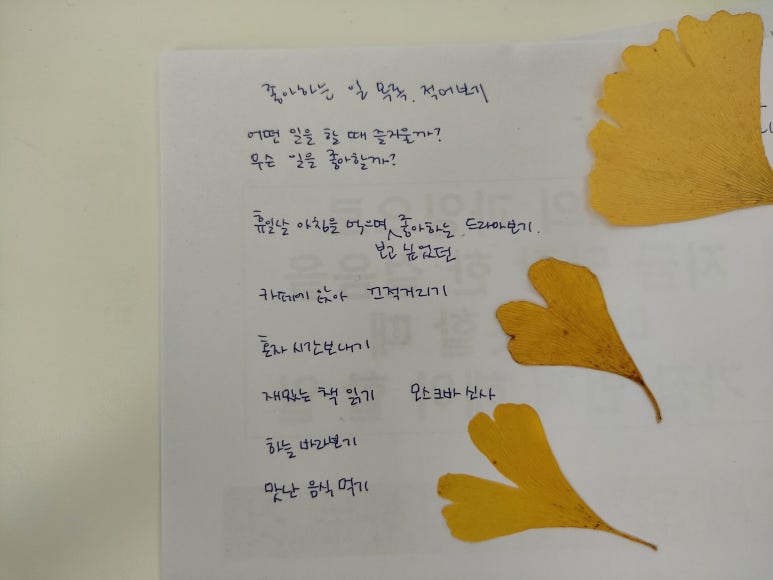 좋아하는 일 목록. 적어보기
어떤 일을 할 때 즐거울까?
무슨 일을 좋아할까?
휴일날 아침을 먹으며 좋아하는 드라마보기.
보고 싶었던
카페에 앉아 끄적거리기
혼자 시간보내기
재밌는 책 읽기 모스크바 신사
하늘 바라보기
맛난 음식 먹기